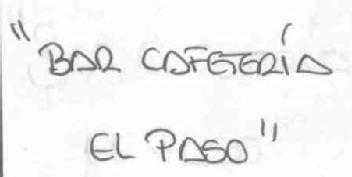 "BAR CAFETERÍA
EL PASO"